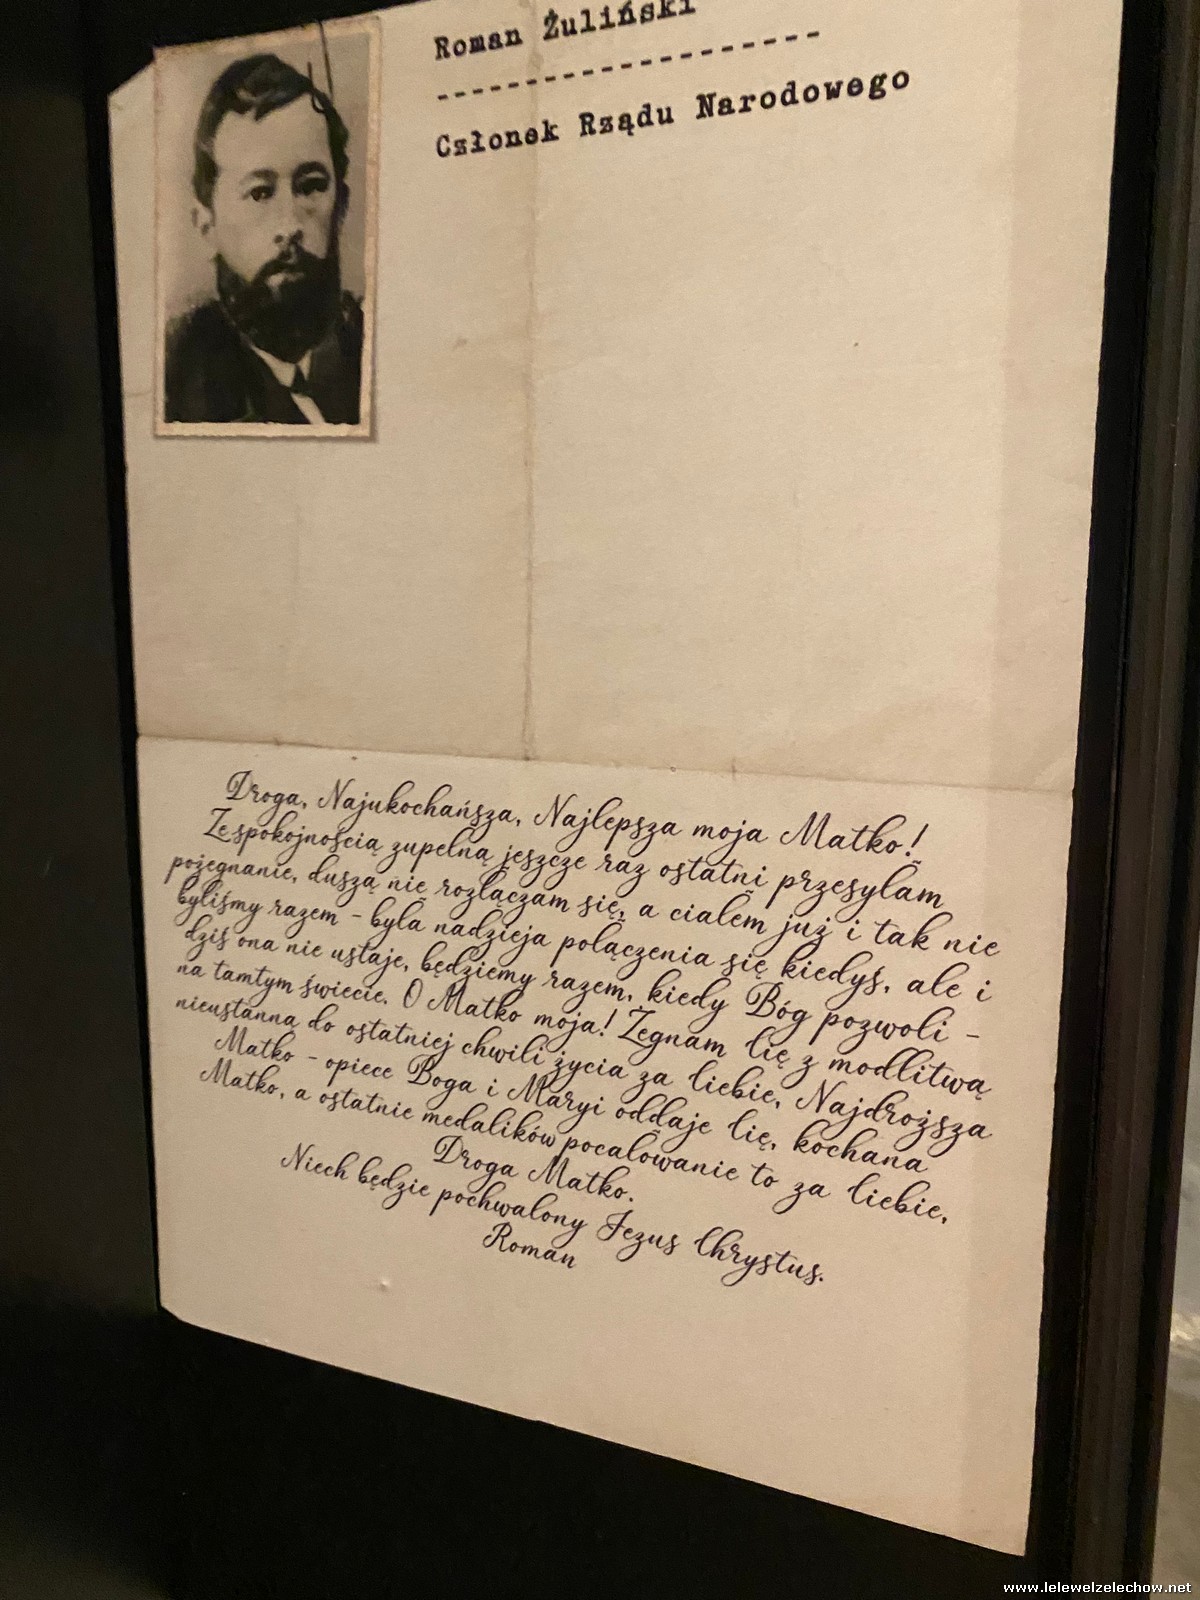 Roman Żuliński
-------------------
Członek Rządu Narodowego
Droga, Najukochańsza, Najlepsza moja Matko!
Ze spokojnością zupełną jeszcze raz ostatni przesyłam
pożegnanie, duszą nie rozłączam się, a ciałem już i tak nie
byliśmy razem - była nadzieja połączenia się kiedyś, ale i
dziś ona nie ustaje, będziemy razem, kiedy Bóg pozwoli -
na tamtym świecie. O Matko moja! Żegnam Cię z modlitwą
nieustanną do ostatniej chwili życia za Ciebie, Najdroższa
Matko - opiece Boga i Maryi oddaję Cię, kochana
Matko, a ostatnie medalików pocałowanie to za Ciebie,
Droga Matko.
Niech będzie pochwalony Jezus Chrystus.
Roman
www.lelewelzelechow.net